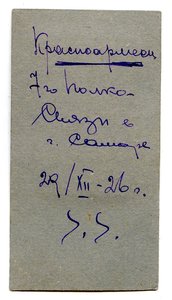 Красноармеец
7го Полка
Связи в
г. Самаре
29/XII-26 г.